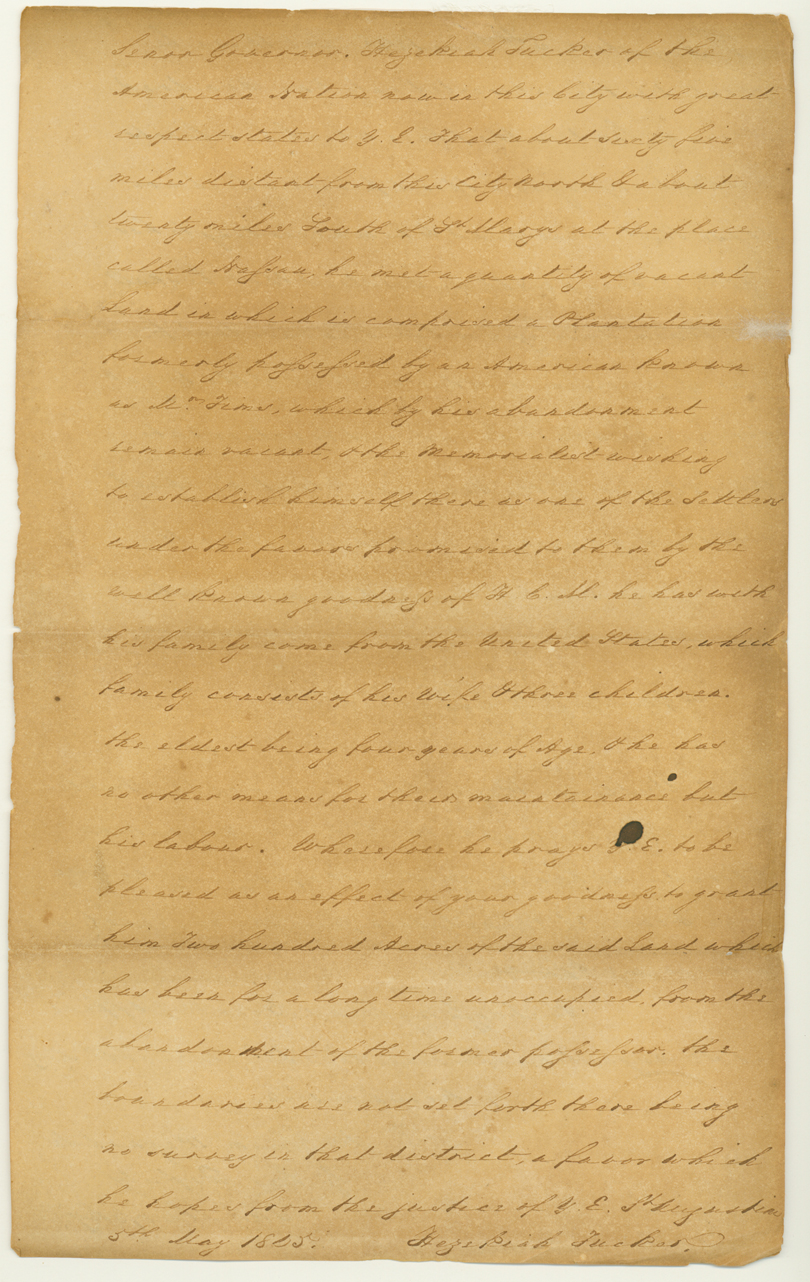 Senor Governor. Hezekiah Tucker of the
American Nation now in this City with great
respect states to Y. E. That about sixty five
miles distant from this City North & about
twenty miles South of St Marys at the place
called Nassau, he met a quantity of vacant
Land in which is comprised a Plantation
formerly possessed by an American known
as Mr. Fims, which by his abandonment
remain vacant, & the Memorialist wishing
to establish himself there as one of the Settlers
under the favors promised to them by the
well known goodness of H. C. M. he has with
his family come from the United States, which
family consists of his Wife & three children.
the eldest being four years of Age. & he has
no other means for their maintainance but
his labour. Wherefore he prays Y. E. to be
pleased as an effect of your goodness to grant
him Two hundred Acres of the said Land which
has been for a long time unoccupied, from the
abandonment of the former possessor. the
boundaries are not set forth there being
no survey in that district, a favor which
he hopes from the justice of Y. E. St Augustine
5th May 1803. Hezekiah Tucker.